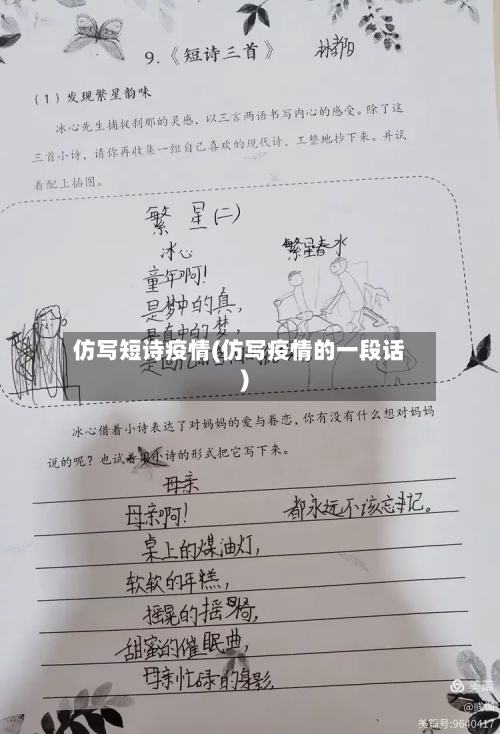 9.《短诗三首》
(1) 发现繁星韵味
冰心先生捕捉刹那的灵感，以三言两语书写内心的感受。除了这
三首小诗，请你再收集一组自己喜欢的现代诗，工整地抄下来。并试
着配上插图。
繁 星(二)
冰心
繁星春水
童年啊!
是梦中的真，
是真中的梦，
仿写短诗疫情(仿写疫情的一段话
)
冰心借着小诗表达了对妈妈的爱与眷恋，你有没有什么想对妈妈
说的呢？也试着用小诗的形式把它写下来。
母亲
母亲啊!
桌上的煤油灯，
软软的年糕，
摇晃的摇椅，
甜蜜的催眠曲，
母亲忙碌的身影，
都永远不该忘记。
美篇
美篇号:9640417